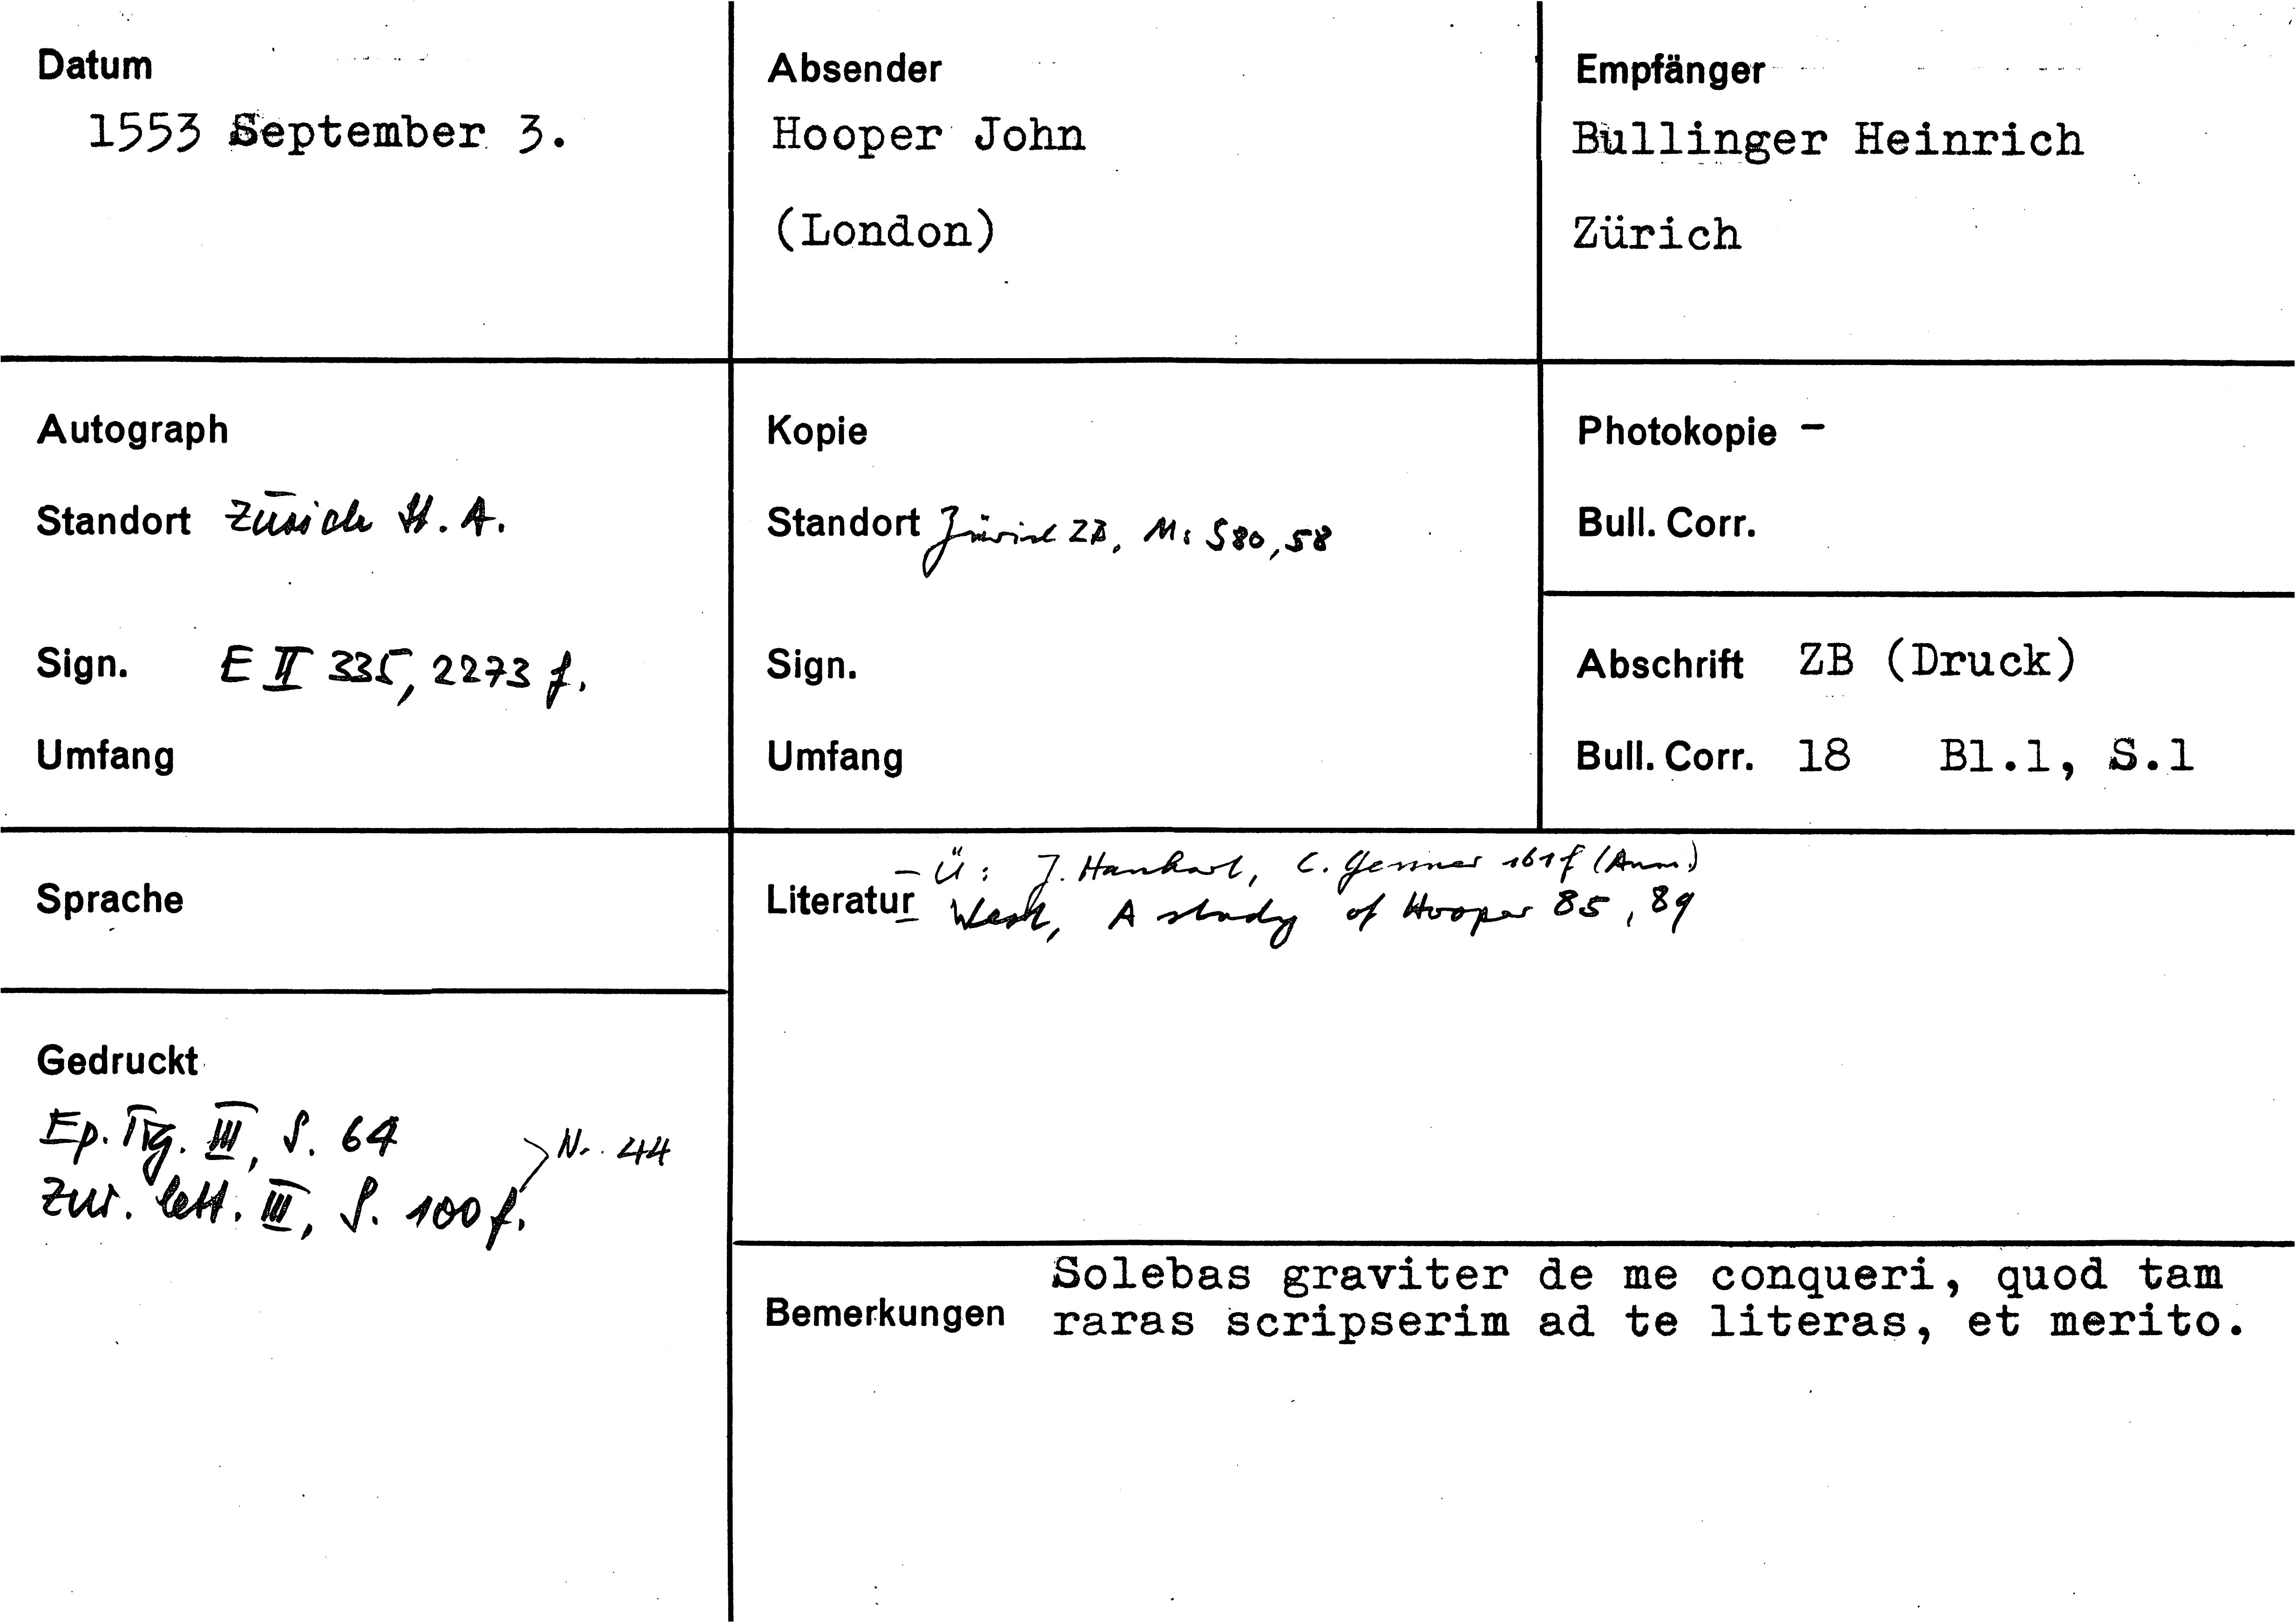 Datum
1553 September 3.
Absender
Hooper John
(London)
Empfänger
Bullinger Heinrich
Zürich
Autograph
Standort Zürich St. A.
Sign. E II 335, 2273 f.
Umfang
Kopie
Standort Zürich ZB, Ms S80, 58
Sign.
Umfang
Photokopie –
Bull. Corr.
Abschrift ZB (Druck)
Bull. Corr. 18 Bl.1, S.1
Sprache
Literatur
– Ü: J. Hanhart, C. Gessner 161f (Anm.)
– West, A study of Hooper 85, 89
Gedruckt
Ep. Tig. III, S. 64
Zur. lett. III, S. 100 f.
Nr. 44
Bemerkungen
Solebas graviter de me conqueri, quod tam
raras scripserim ad te literas, et merito.